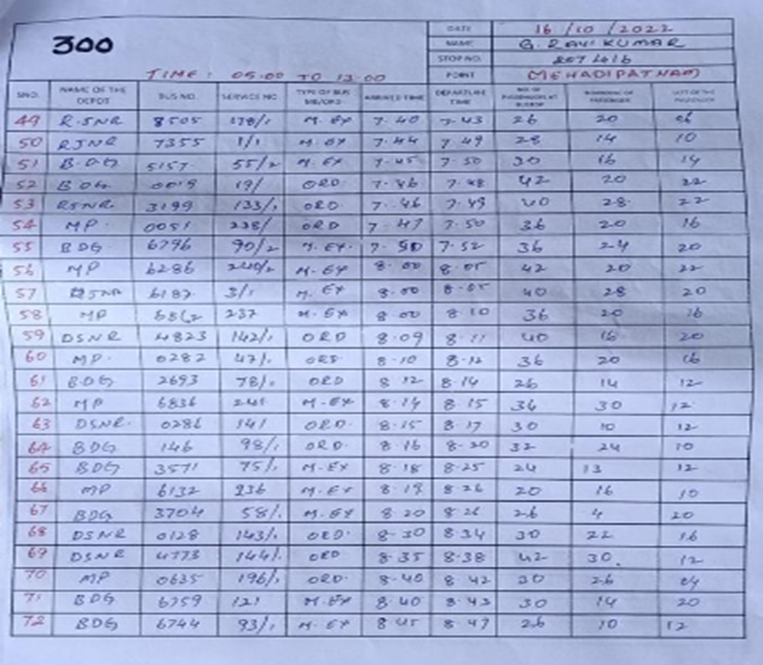 300
DATE 16/10/2022
NAME G. RAVI KUMAR
STOP NO.
TIME: 05.00 TO 13.00 POINT MEHADIPATNAM
SNO. NAME OF THE DEPOT BUS NO. SERVICE NO TYPE OF BUS ARRIVED TIME DEPARTURE TIME
49 R.SNR 8505 178/1 M.EX 7.40 7.43 26 20 06
50 RSNR 7355 1/1 M.EX 7.44 7.49 28 14 10
51 BDG 5157 55/2 M.EX 7.45 7.50 30 16 14
52 BDG 0019 19/ ORD 7.46 7.48 42 20 22
53 RSNR 3199 133/1 ORD 7.46 7.49 40 28 22
54 MP. 0051 238/ ORD 7.47 7.50 36 20 16
55 BDG 6796 90/2 M.EX. 7.50 7.52 36 24 20
56 MP 6286 240/2 M.EX 8.00 8.05 42 20 22
57 RSNR 6187 3/1 M.EX 8.00 8.05 40 28 20
58 MP 237 M.EX 8.00 8.10 36 20 16
59 DSNR 4823 142/1 ORD 8.09 8.11 40 16 20
60 MP. 0282 47/1 ORD 8.10 8.12 36 20 16
61 BDG 2693 78/1 ORD 8.12 8.14 26 14 12
62 MP 6836 241 M.EX 8.14 8.15 34 30 12
63 DSNR. 0286 141 ORD. 8.15 8.17 30 10 12
64 BDG 146 98/1 ORD. 8.16 8.20 32 24 10
65 BDG 3571 75/1 M.EX 8.18 8.25 24 13 12
66 MP 6132 236 M.EX 8.19 8.26 20 16 10
67 BDG 3704 58/1 M.EX 8.20 8.26 26 4 20
68 DSNR 0128 143/1 ORD. 8.30 8.34 30 22 16
69 DSNR 4773 144/1 ORD 8.35 8.38 42 30. 12
70 MP 0635 196/1 ORD. 8.40 8.42 30 26 04
71 BDG 6759 121 M.EX 8.40 8.43 30 14 20
72 BDG 6744 93/1 M.EX 8.45 8.47 26 10 12